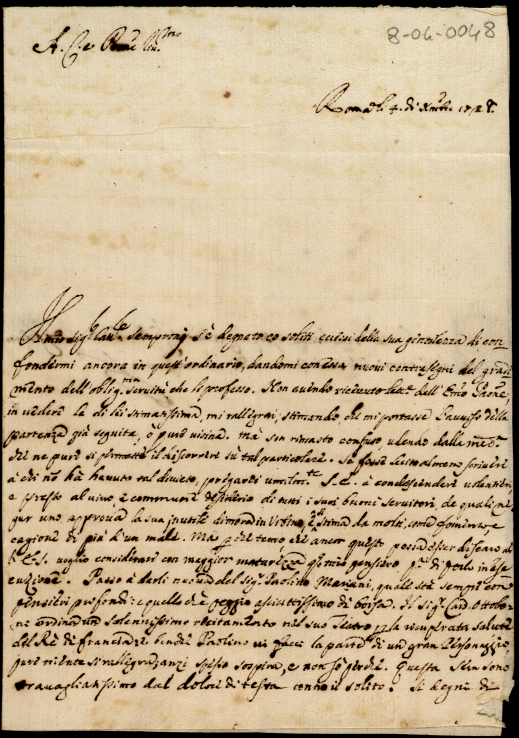 8-04-0048
A. C. e Prone
Roma li 4. di Xmbre 1728.
Il mio Sig.r Cav.re Sempronj s'è degnato co soliti eccessi della sua gentilezza di con
fondermi ancora in quest'ordinario, dandomi con essa nuovi contrasegni del gradi
mento dell'oblig.ma servitù che le professo. Non avendo ricevuto lett.a dell' Emo Prone,
in vedere la di lei stimatissima, mi rallegrai, stimando che mi portasse l'avviso della
partenza già seguita, ò pure vicina. ma son rimasto confuso vedendo dalla med.a
che ne pure si permette il discorrere su tal particolare. Se fosse lecito almeno scrivere
à chi nõ hà havuto tal divieto, pregarei umilm.te S. E. à condescendere volentieri,
e presto al vivo e commune desiderio di tutti i suoi buoni servitori, de quali ne
pur uno approva la sua inutile dimora in Urbino, stimata da molti, come fomento e
cagione di più d'un male. Ma perche temo che ancor questo possa esser discaro à
S. E. voglio considerar con maggior maturezza q.to mio pensiero p.a di porlo in ese
cuzione. Passo à darli nuova del Sig.r Paolino Mariani, quale stà sempre con
pensieri profondi: e quello ch'è peggio asciuttissimo di borsa. Il Sig.r Card. Ottobo-
ni ordina un solennissimo recitamento nel suo Teatro p la ricuperata salute
del Rè di Francia: e benche Paolino vi facci la parte di un gran Personaggio,
pure niente si rallegra, anzi spesso sospira, e non sò perche. Questa sera sono
travagliatissimo dal dolor di testa conforme il solito. Si degni di